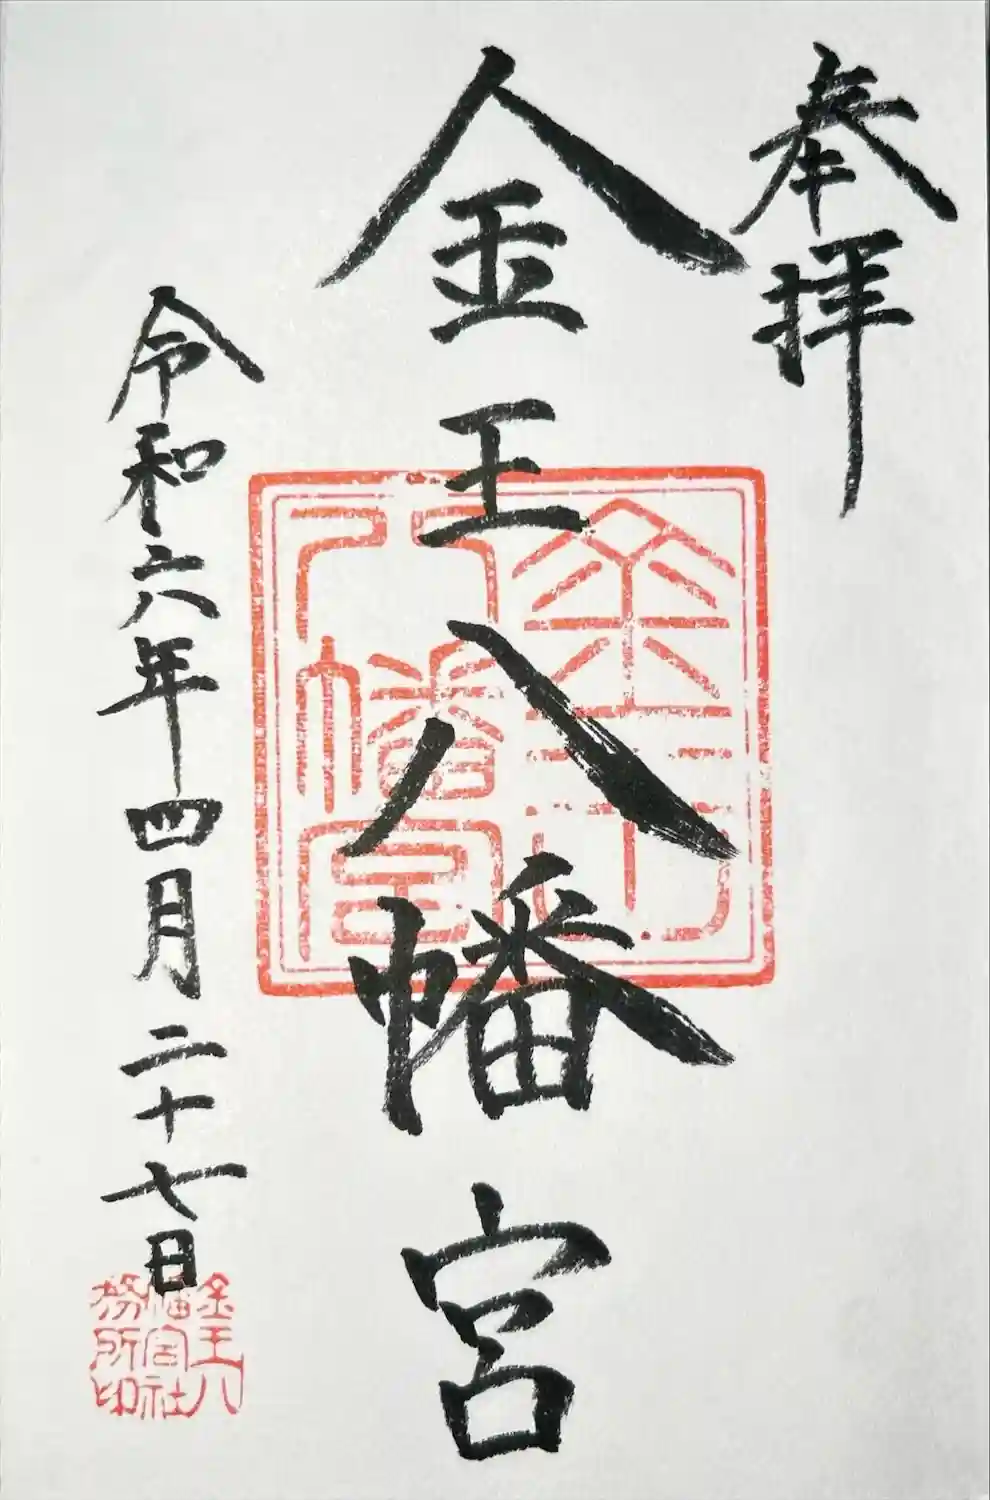 奉拝
金王八幡宮
令和六年四月二十七日
金王八
幡宮
金王八
幡宮社
務所印